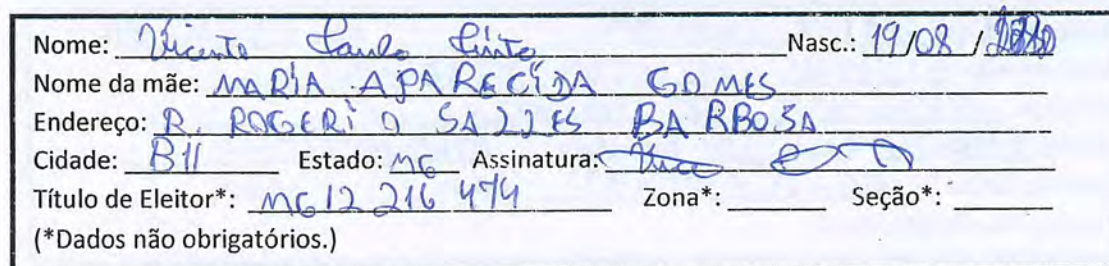 Nome: Vicente Paulo Pinto Nasc.: 19/08/
Nome da mãe: MARIA APARECIDA GOMES
Endereço: R. ROGERIO SALLES BARBOSA
Cidade: BH Estado: MG Assinatura:
Título de Eleitor*: MG 12 216 474 Zona*: Seção*:
(*Dados não obrigatórios.)